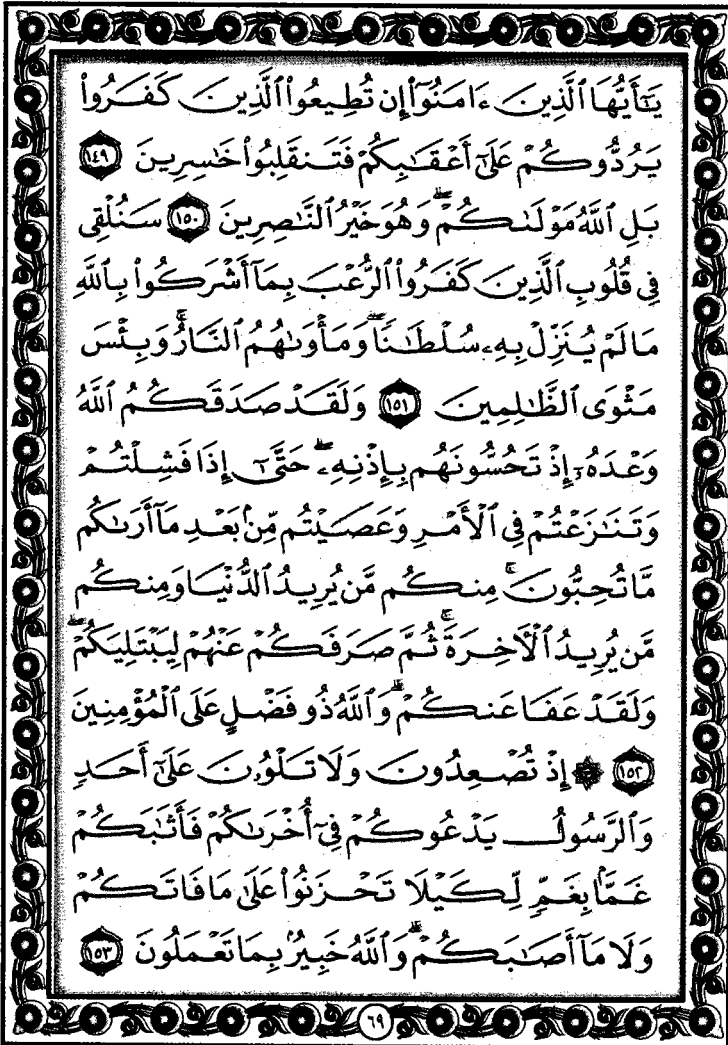 يَٰٓأَيُّهَا ٱلَّذِينَ ءَامَنُوٓا۟ إِن تُطِيعُوا۟ ٱلَّذِينَ كَفَرُوا۟
يَرُدُّوكُمْ عَلَىٰٓ أَعْقَٰبِكُمْ فَتَنقَلِبُوا۟ خَٰسِرِينَ ١٤٩
بَلِ ٱللَّهُ مَوْلَىٰكُمْ ۖ وَهُوَ خَيْرُ ٱلنَّٰصِرِينَ ١٥٠ سَنُلْقِى
فِى قُلُوبِ ٱلَّذِينَ كَفَرُوا۟ ٱلرُّعْبَ بِمَآ أَشْرَكُوا۟ بِٱللَّهِ
مَا لَمْ يُنَزِّلْ بِهِۦ سُلْطَٰنًا ۖ وَمَأْوَىٰهُمُ ٱلنَّارُ ۚ وَبِئْسَ
مَثْوَى ٱلظَّٰلِمِينَ ١٥١ وَلَقَدْ صَدَقَكُمُ ٱللَّهُ
وَعْدَهُۥٓ إِذْ تَحُسُّونَهُم بِإِذْنِهِۦ ۖ حَتَّىٰٓ إِذَا فَشِلْتُمْ
وَتَنَٰزَعْتُمْ فِى ٱلْأَمْرِ وَعَصَيْتُم مِّنۢ بَعْدِ مَآ أَرَىٰكُم
مَّا تُحِبُّونَ ۚ مِنكُم مَّن يُرِيدُ ٱلدُّنْيَا وَمِنكُم
مَّن يُرِيدُ ٱلْءَاخِرَةَ ۚ ثُمَّ صَرَفَكُمْ عَنْهُمْ لِيَبْتَلِيَكُمْ ۖ
وَلَقَدْ عَفَا عَنكُمْ ۗ وَٱللَّهُ ذُو فَضْلٍ عَلَى ٱلْمُؤْمِنِينَ
١٥٢ ۞ إِذْ تُصْعِدُونَ وَلَا تَلْوُۥنَ عَلَىٰٓ أَحَدٍ
وَٱلرَّسُولُ يَدْعُوكُمْ فِىٓ أُخْرَىٰكُمْ فَأَثَٰبَكُمْ
غَمًّۢا بِغَمٍّ لِّكَيْلَا تَحْزَنُوا۟ عَلَىٰ مَا فَاتَكُمْ
وَلَا مَآ أَصَٰبَكُمْ ۗ وَٱللَّهُ خَبِيرٌۢ بِمَا تَعْمَلُونَ ١٥٣
٦٩